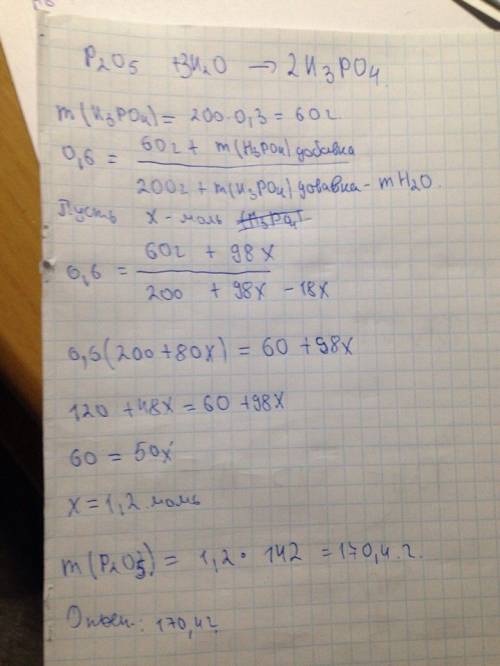 P₂O₅ +3H₂O → 2H₃PO₄
m(H₃PO₄) = 200·0,3 = 60г.
0,6 = (60г + m(H₃PO₄) добавка) / (200г + m(H₃PO₄) довавка - mH₂O.)
Пусть х - моль H₃PO₄
0,6 = (60г + 98х) / (200 + 98х - 18х)
0,6(200+80х) = 60 +98х
120 +48х = 60 +98х
60 = 50х
х = 1,2 моль
m(P₂O₅) = 1,2 · 142 = 170,4 г.
Ответ: 170,4г